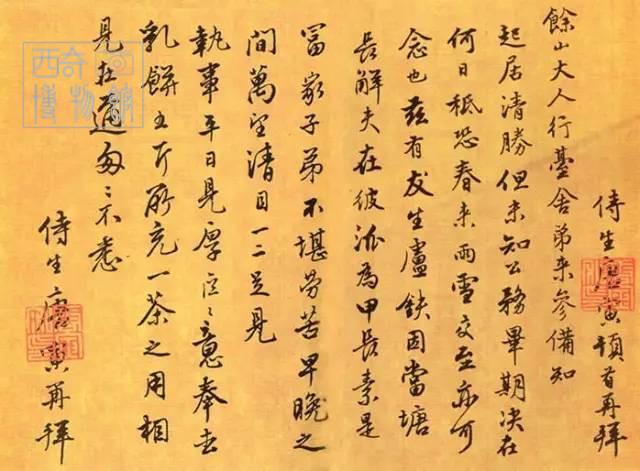 侍生唐寅頓首再拜
餘山大人行臺舍弟来參備知
起居清勝但未知公務畢期决在
何日秪恐春来雨雪交至亦可
念也茲有友生盧鈇因當塘
長解夫在彼泒為甲長素是
富家子弟不堪勞苦早晚之
間萬望清目一二足見
執事平日見厚區〻意奉去
乳餅五斤所充一茶之用相
見在邇匆〻不悉
侍生唐寅再拜
西奇
博物館